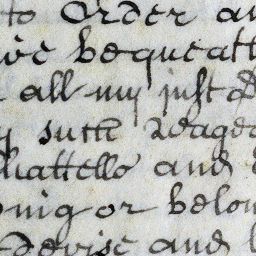 to Order an
ive bequeath
all my just d
such Wages
hattells and
ing or belon
Devise and